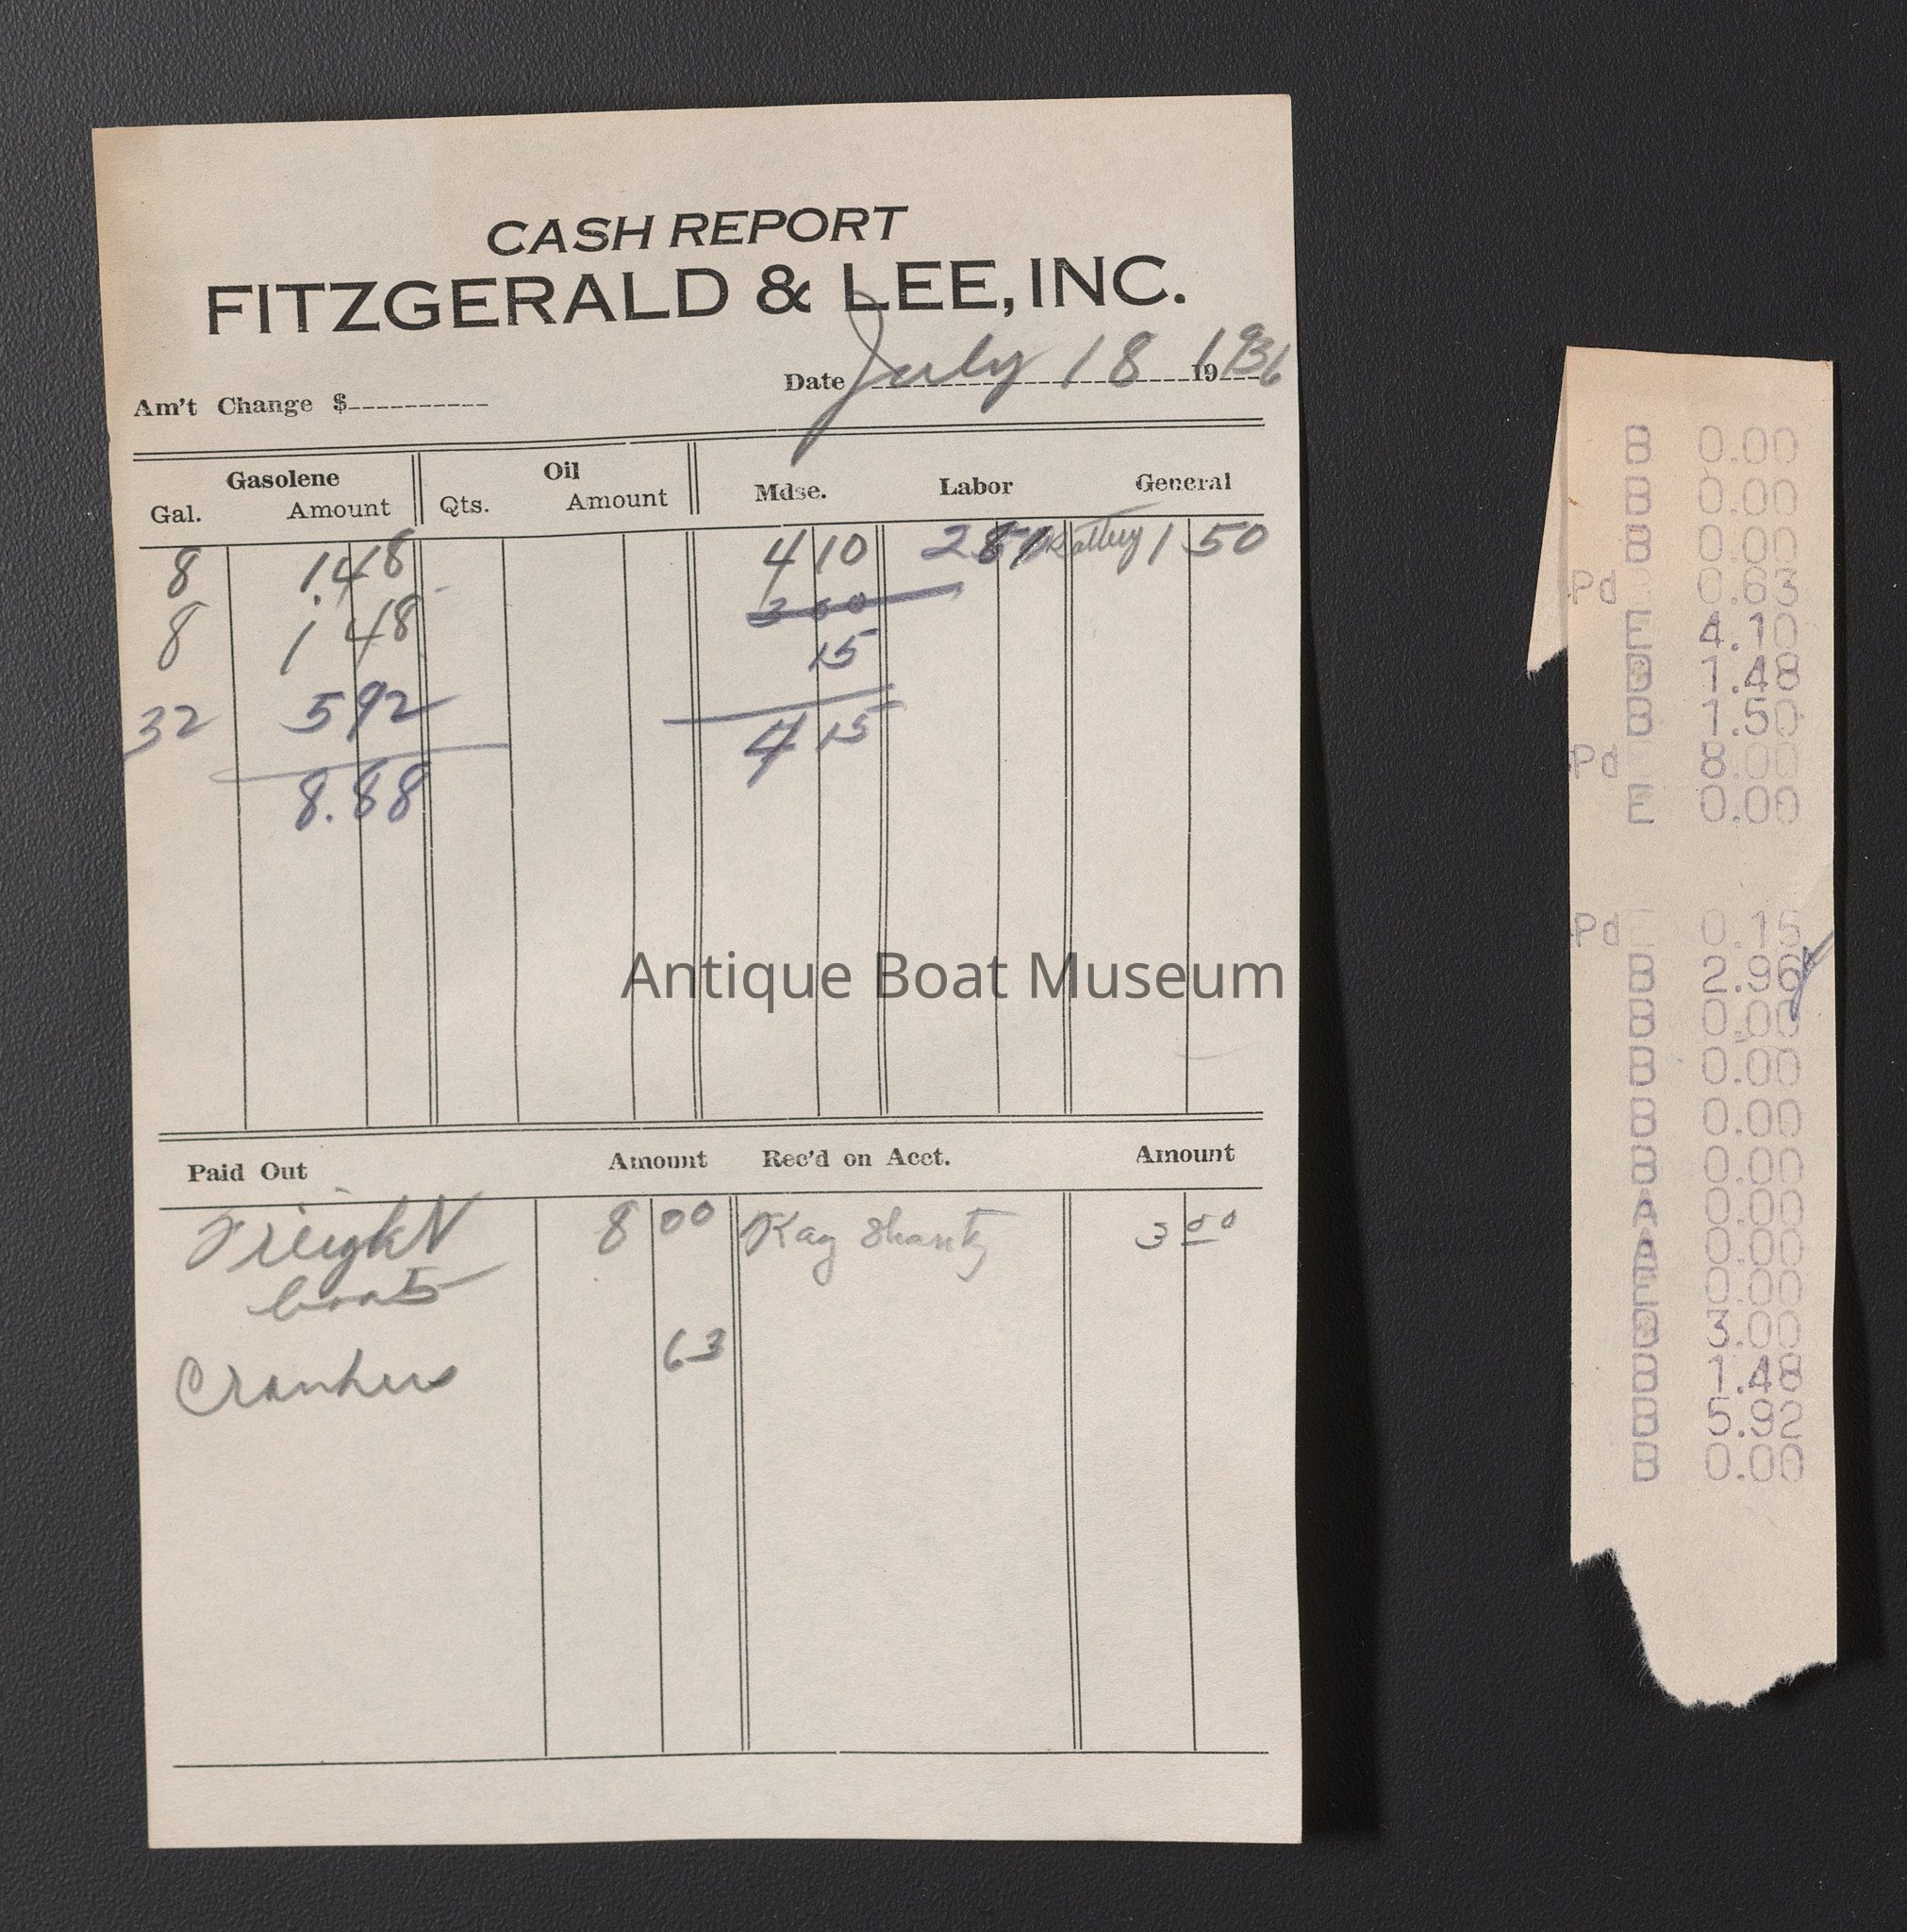 CASH REPORT
FITZGERALD & LEE, INC.
Date July 18 19 1936
Am't Change $
Gasolene Oil Mdse. Labor General
Gal. Amount Qts. Amount
8 1.48 4 10 Battery 1 50
8 1 48 3 00
15
32 5 92 4 15
8.88
Antique Boat Museum
Paid Out Amount Rec'd on Acct. Amount
Freight 8 00 Kay 3 00
boat
63
B 0.00
B 0.00
B 0.00
Pd 0.63
E 4.10
B 1.48
B 1.50
Pd 8.00
E 0.00
Pd E 0.15
B 2.96
B 0.00
B 0.00
B 0.00
B 0.00
A 0.00
A 0.00
E 0.00
B 3.00
B 1.48
B 5.92
B 0.00